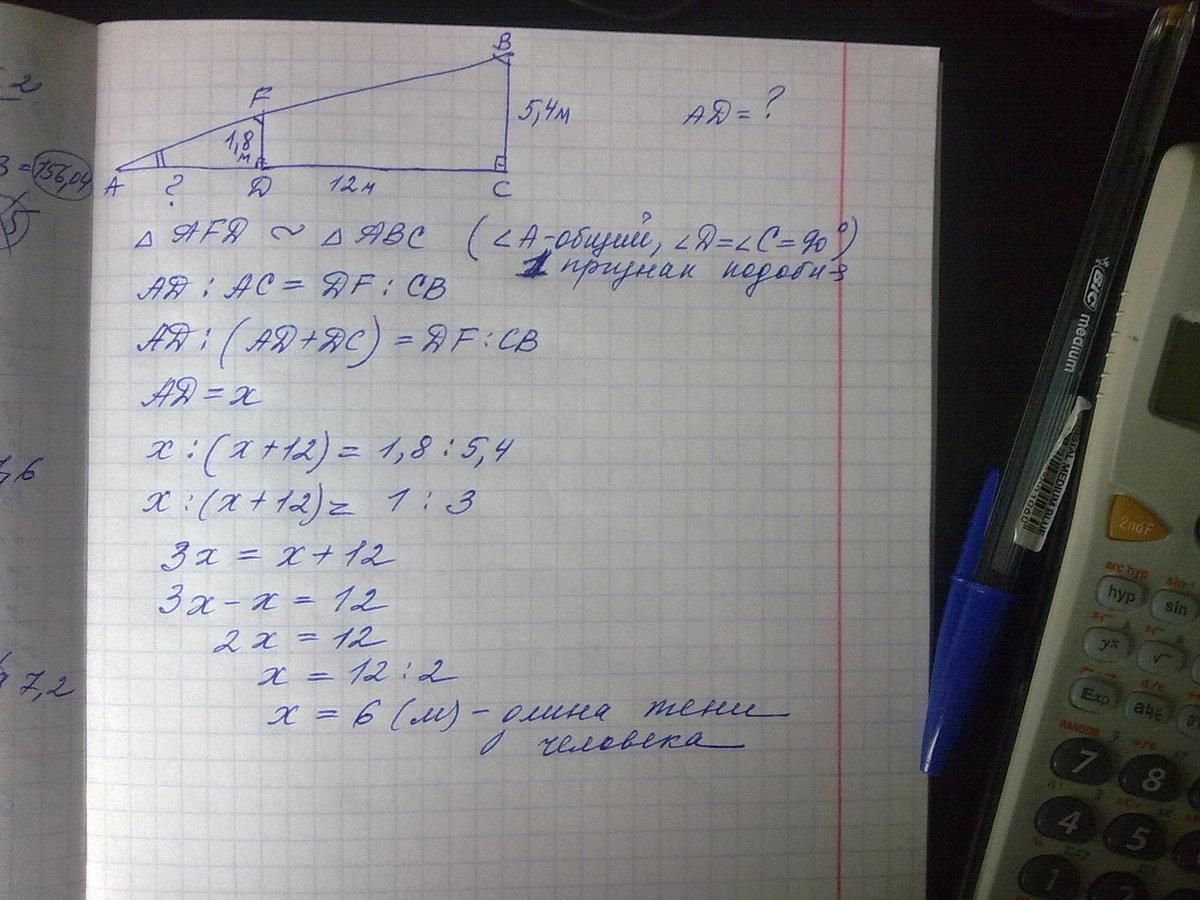 B
F
5,4м
AD = ?
1,8
м
A
?
D
12м
C
△ AFD ~ △ ABC (∠A-общий, ∠D=∠C=90°)
1 признак подобия
AD : AC = DF : CB
AD : (AD+DC) = DF : CB
AD = x
x : (x+12) = 1,8 : 5,4
x : (x+12) = 1 : 3
3x = x + 12
3x - x = 12
2x = 12
x = 12 : 2
x = 6 (м) - длина тени
человека
2
3 = 156,04
5
6
7,2
BIC medium
2ndF
arc hyp
sin-1
hyp
sin
yx
√
Exp
a b/c
d/c
RANDOM
7
8
4
5
1
2